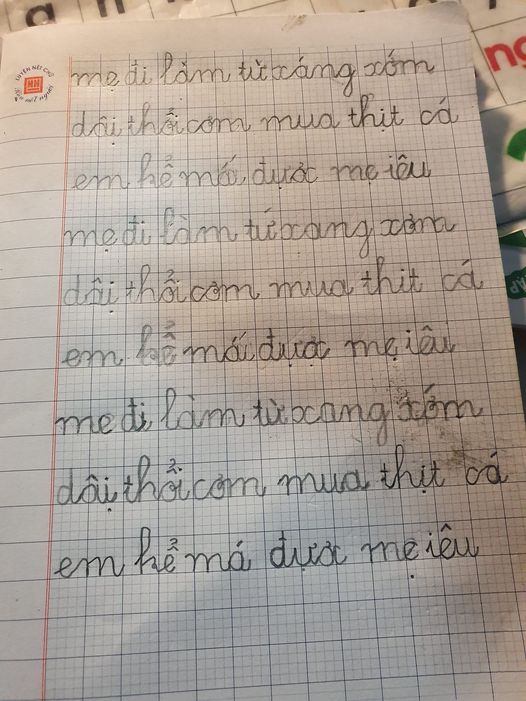 LUYỆN NÉT CHỮ
RÈN NẾT NGƯỜI
mẹ đi làm từ xáng xớm
dậi thổi cơm mua thịt cá
em hể má được mẹ iêu
mẹ đi làm từ xang xớm
dậi thổi cơm mua thịt cá
em hể mái được mẹ iêu
mẹ đi làm từ xang xớm
dậi thổi cơm mua thịt cá
em hể má được mẹ iêu